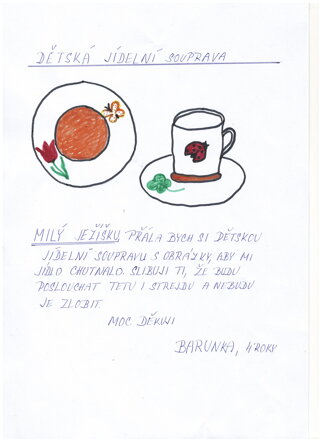 DĚTSKÁ JÍDELNÍ SOUPRAVA
MILÝ JEŽÍŠKU, PŘÁLA BYCH SI DĚTSKOU
JÍDELNÍ SOUPRAVU S OBRÁZKY, ABY MI
JÍDLO CHUTNALO. SLIBUJI TI, ŽE BUDU
POSLOUCHAT TETU I STREJDU A NEBUDU
JE ZLOBIT.
MOC DĚKUJI
BARUNKA, 4 ROKY